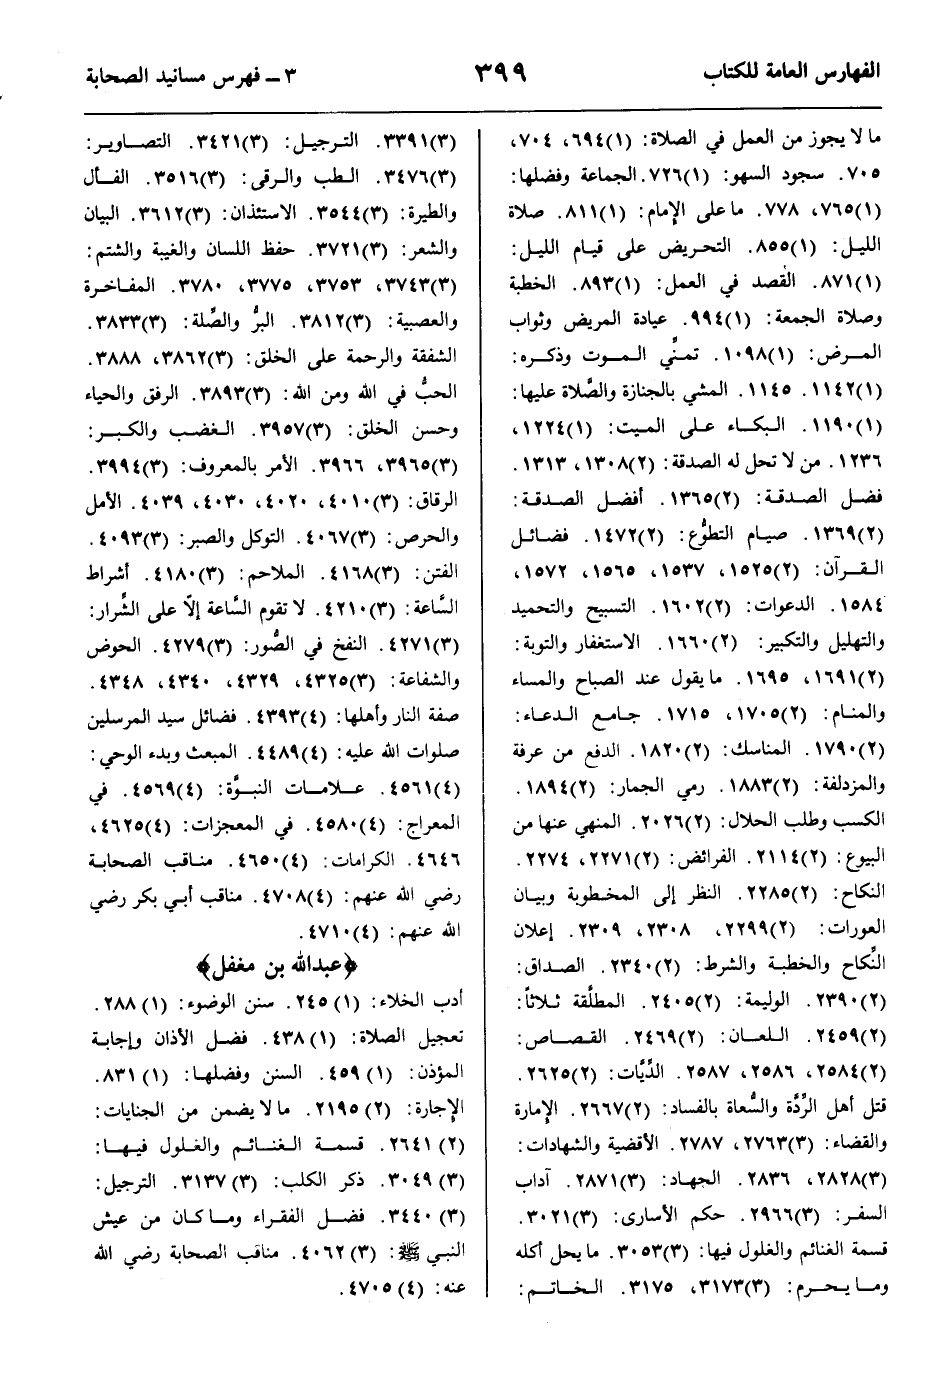 الفهارس العامة للكتاب ٣٩٩ ٣ ـ فهرس مسانيد الصحابة
ما لا يجوز من العمل في الصلاة: (١)٦٩٤، ٧٠٤،
٧٠٥. سجود السهو: (١)٧٢٦. الجماعة وفضلها:
(١)٧٦٥، ٧٧٨. ما على الإمام: (١)٨١١. صلاة
الليل: (١)٨٥٥. التحريض على قيام الليل:
(١)٨٧١. القصد في العمل: (١)٨٩٣. الخطبة
وصلاة الجمعة: (١)٩٩٤. عيادة المريض وثواب
المرض: (١)١٠٩٨. تمنِّي الموت وذكره:
(١)١١٤٢. ١١٤٥. المشي بالجنازة والصَّلاة عليها:
(١)١١٩٠. البكاء على الميت: (١)١٢٢٤،
١٢٣٦. من لا تحل له الصدقة: (٢)١٣٠٨، ١٣١٣.
فضل الصدقة: (٢)١٣٦٥. أفضل الصدقة:
(٢)١٣٦٩. صيام التطوُّع: (٢)١٤٧٢. فضائل
القرآن: (٢)١٥٢٥، ١٥٣٧، ١٥٦٥، ١٥٧٢،
١٥٨٤. الدعوات: (٢)١٦٠٢. التسبيح والتحميد
والتهليل والتكبير: (٢)١٦٦٠. الاستغفار والتوبة:
(٢)١٦٩١، ١٦٩٥. ما يقول عند الصباح والمساء
والمنام: (٢)١٧٠٥، ١٧١٥. جامع الدعاء:
(٢)١٧٩٠. المناسك: (٢)١٨٢٠. الدفع من عرفة
والمزدلفة: (٢)١٨٨٣. رمي الجمار: (٢)١٨٩٤.
الكسب وطلب الحلال: (٢)٢٠٢٦. المنهي عنها من
البيوع: (٢)٢١١٤. الفرائض: (٢)٢٢٧١، ٢٢٧٤.
النكاح: (٢)٢٢٨٥. النظر إلى المخطوبة وبيان
العورات: (٢)٢٢٩٩، ٢٣٠٨، ٢٣٠٩. إعلان
النِّكاح والخطبة والشرط: (٢)٢٣٤٠. الصداق:
(٢)٢٣٩٠. الوليمة: (٢)٢٤٠٥. المطلَّقة ثلاثاً:
(٢)٢٤٥٩. اللعان: (٢)٢٤٦٩. القصاص:
(٢)٢٥٨٤، ٢٥٨٦، ٢٥٨٧. الدِّيَّات: (٢)٢٦٢٥.
قتل أهل الرِّدَّة والسُّعاة بالفساد: (٢)٢٦٦٧. الإمارة
والقضاء: (٣)٢٧٦٣، ٢٧٨٧. الأقضية والشهادات:
(٣)٢٨٢٨، ٢٨٣٦. الجهاد: (٣)٢٨٧١. آداب
السفر: (٣)٢٩٦٦. حكم الأسارى: (٣)٣٠٢١.
قسمة الغنائم والغلول فيها: (٣)٣٠٥٣. ما يحل أكله
وما يحرم: (٣)٣١٧٣، ٣١٧٥. الخاتم:
(٣)٣٣٩١. الترجيل: (٣)٣٤٢١. التصاوير:
(٣)٣٤٧٦. الطب والرقى: (٣)٣٥١٦. الفأل
والطيرة: (٣)٣٥٤٤. الاستئذان: (٣)٣٦١٢. البيان
والشعر: (٣)٣٧٢١. حفظ اللسان والغيبة والشتم:
(٣)٣٧٤٣، ٣٧٥٣، ٣٧٧٥، ٣٧٨٠. المفاخرة
والعصبية: (٣)٣٨١٢. البرُّ والصِّلة: (٣)٣٨٣٣.
الشفقة والرحمة على الخلق: (٣)٣٨٦٢، ٣٨٨٨.
الحبُّ في الله ومن الله: (٣)٣٨٩٣. الرفق والحياء
وحسن الخلق: (٣)٣٩٥٧. الغضب والكبر:
(٣)٣٩٦٥، ٣٩٦٦. الأمر بالمعروف: (٣)٣٩٩٤.
الرقاق: (٣)٤٠١٠، ٤٠٢٠، ٤٠٣٠، ٤٠٣٩. الأمل
والحرص: (٣)٤٠٦٧. التوكل والصبر: (٣)٤٠٩٣.
الفتن: (٣)٤١٦٨. الملاحم: (٣)٤١٨٠. أشراط
السَّاعة: (٣)٤٢١٠. لا تقوم السَّاعة إلّا على الشِّرار:
(٣)٤٢٧١. النفخ في الصُّور: (٣)٤٢٧٩. الحوض
والشفاعة: (٣)٤٣٢٥، ٤٣٢٩، ٤٣٤٠، ٤٣٤٨.
صفة النار وأهلها: (٤)٤٣٩٣. فضائل سيد المرسلين
صلوات الله عليه: (٤)٤٤٨٩. المبعث وبدء الوحي:
(٤)٤٥٦١. علامات النبوَّة: (٤)٤٥٦٩. في
المعراج: (٤)٤٥٨٠. في المعجزات: (٤)٤٦٢٥،
٤٦٤٦. الكرامات: (٤)٤٦٥٠. مناقب الصحابة
رضي الله عنهم: (٤)٤٧٠٨. مناقب أبي بكر رضي
الله عنهم: (٤)٤٧١٠.
﴿عبدالله بن مغفل﴾
أدب الخلاء: (١)٢٤٥. سنن الوضوء: (١)٢٨٨.
تعجيل الصلاة: (١)٤٣٨. فضل الأذان وإجابة
المؤذن: (١)٤٥٩. السنن وفضلها: (١)٨٣١.
الإجارة: (٢)٢١٩٥. ما لا يضمن من الجنايات:
(٢)٢٦٤١. قسمة الغنائم والغلول فيها:
(٣)٣٠٤٩. ذكر الكلب: (٣)٣١٣٧. الترجيل:
(٣)٣٤٤٠. فضل الفقراء وما كان من عيش
النبي ﷺ: (٣)٤٠٦٢. مناقب الصحابة رضي الله
عنه: (٤)٤٧٠٥.